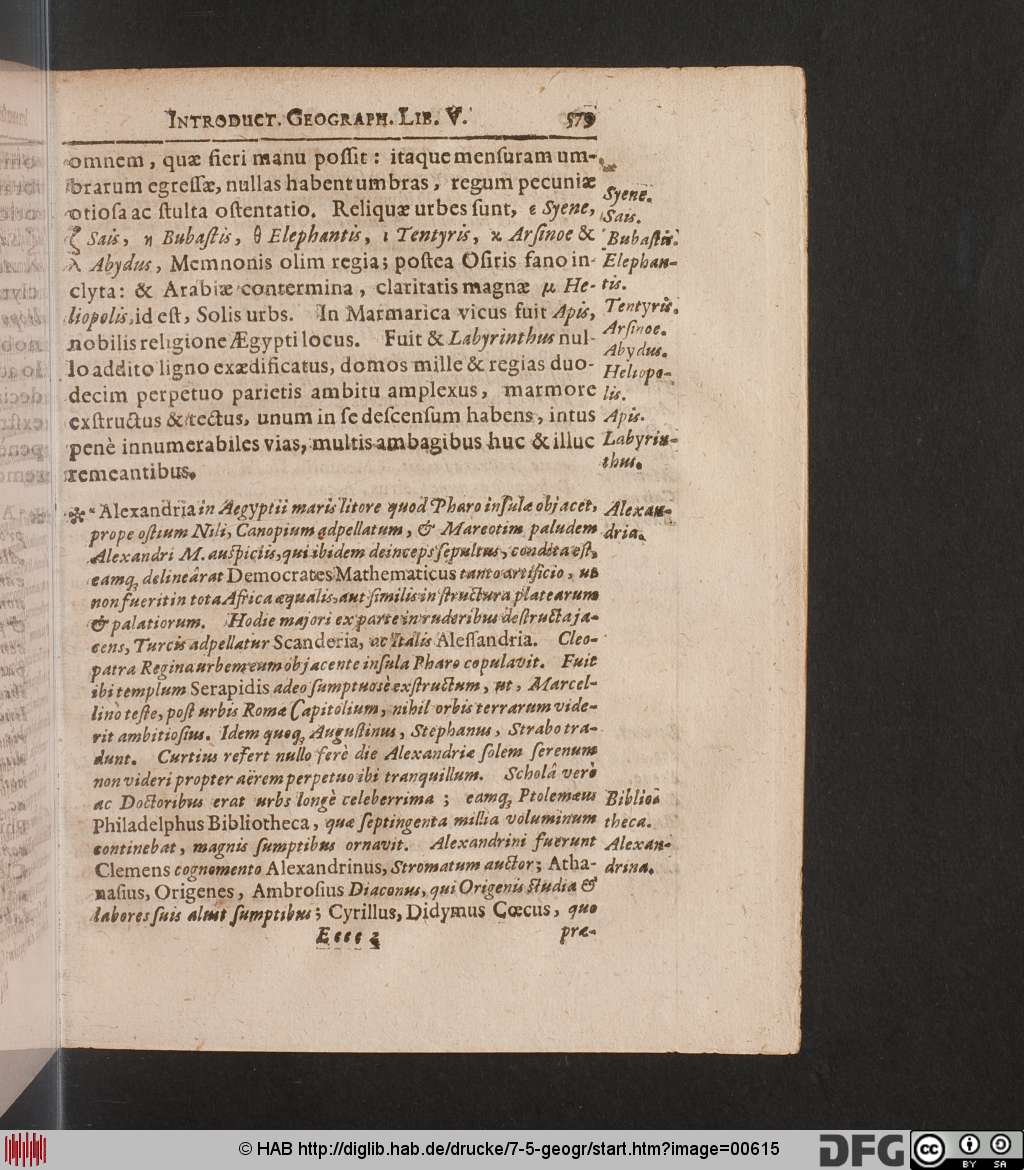 INTRODUCT. GEOGRAPH. LIB. V. 579
omnem, quæ fieri manu poſſit: itaque menſuram um-
brarum egreſſæ, nullas habent umbras, regum pecuniæ
otioſa ac ſtulta oſtentatio. Reliquæ urbes ſunt, ε Syene,
ζ Sais, η Bubaſtis, θ Elephantis, ι Tentyris, κ Arſinoe &
λ Abydus, Memnonis olim regia; poſtea Oſiris fano in-
clyta: & Arabiæ contermina, claritatis magnæ μ He-
liopolis, id eſt, Solis urbs. In Marmarica vicus fuit Apis,
nobilis religione Ægypti locus. Fuit & Labyrinthus nul-
lo addito ligno exædificatus, domos mille & regias duo-
decim perpetuo parietis ambitu amplexus, marmore
exſtructus & tectus, unum in ſe deſcenſum habens, intus
penè innumerabiles vias, multis ambagibus huc & illuc
remeantibus.
Syene.
Sais.
Bubaſtis.
Elephan-
tis.
Tentyris.
Arſinoe.
Abydus.
Heliopo-
lis.
Apis.
Labyrin-
thus.
* Alexandria in Aegyptii maris litore quod Pharo inſulæ objacet,
prope oſtium Nili, Canopium adpellatum, & Mareotim paludem
Alexandri M. auſpiciis, qui ibidem deinceps ſepultus, condita eſt,
eamq; delineârat Democrates Mathematicus tanto artificio, ut
non fuerit in tota Africa æqualis, aut ſimilis in ſtructura platearum
& palatiorum. Hodie majori ex parte in ruderibus deſtructa ja-
cens, Turcis adpellatur Scanderia, ac Italis Aleſſandria. Cleo-
patra Regina urbem eum objacente inſula Pharo copulavit. Fuit
ibi templum Serapidis adeo ſumptuosè exſtructum, ut, Marcel-
linò teſte, poſt urbis Romæ Capitolium, nihil orbis terrarum vide-
rit ambitioſius. Idem quoq; Auguſtinus, Stephanus, Strabo tra-
dunt. Curtius refert nullo ferè die Alexandriæ ſolem ſerenum
non videri propter aërem perpetuo ibi tranquillum. Scholâ verò
ac Doctoribus erat urbs longè celeberrima; eamq; Ptolemæus
Philadelphus Bibliotheca, quæ ſeptingenta millia voluminum
continebat, magnis ſumptibus ornavit. Alexandrini fuerunt
Clemens cognomento Alexandrinus, Stromatum auctor; Atha-
naſius, Origenes, Ambroſius Diaconus, qui Origenis ſtudia &
labores ſuis aluit ſumptibus; Cyrillus, Didymus Cœcus, quo
Alexan-
dria.
Biblio-
theca.
Alexan-
drina.
Eeee 2 præ-
© HAB http://diglib.hab.de/drucke/7-5-geogr/start.htm?image=00615
DFG
cc BY SA